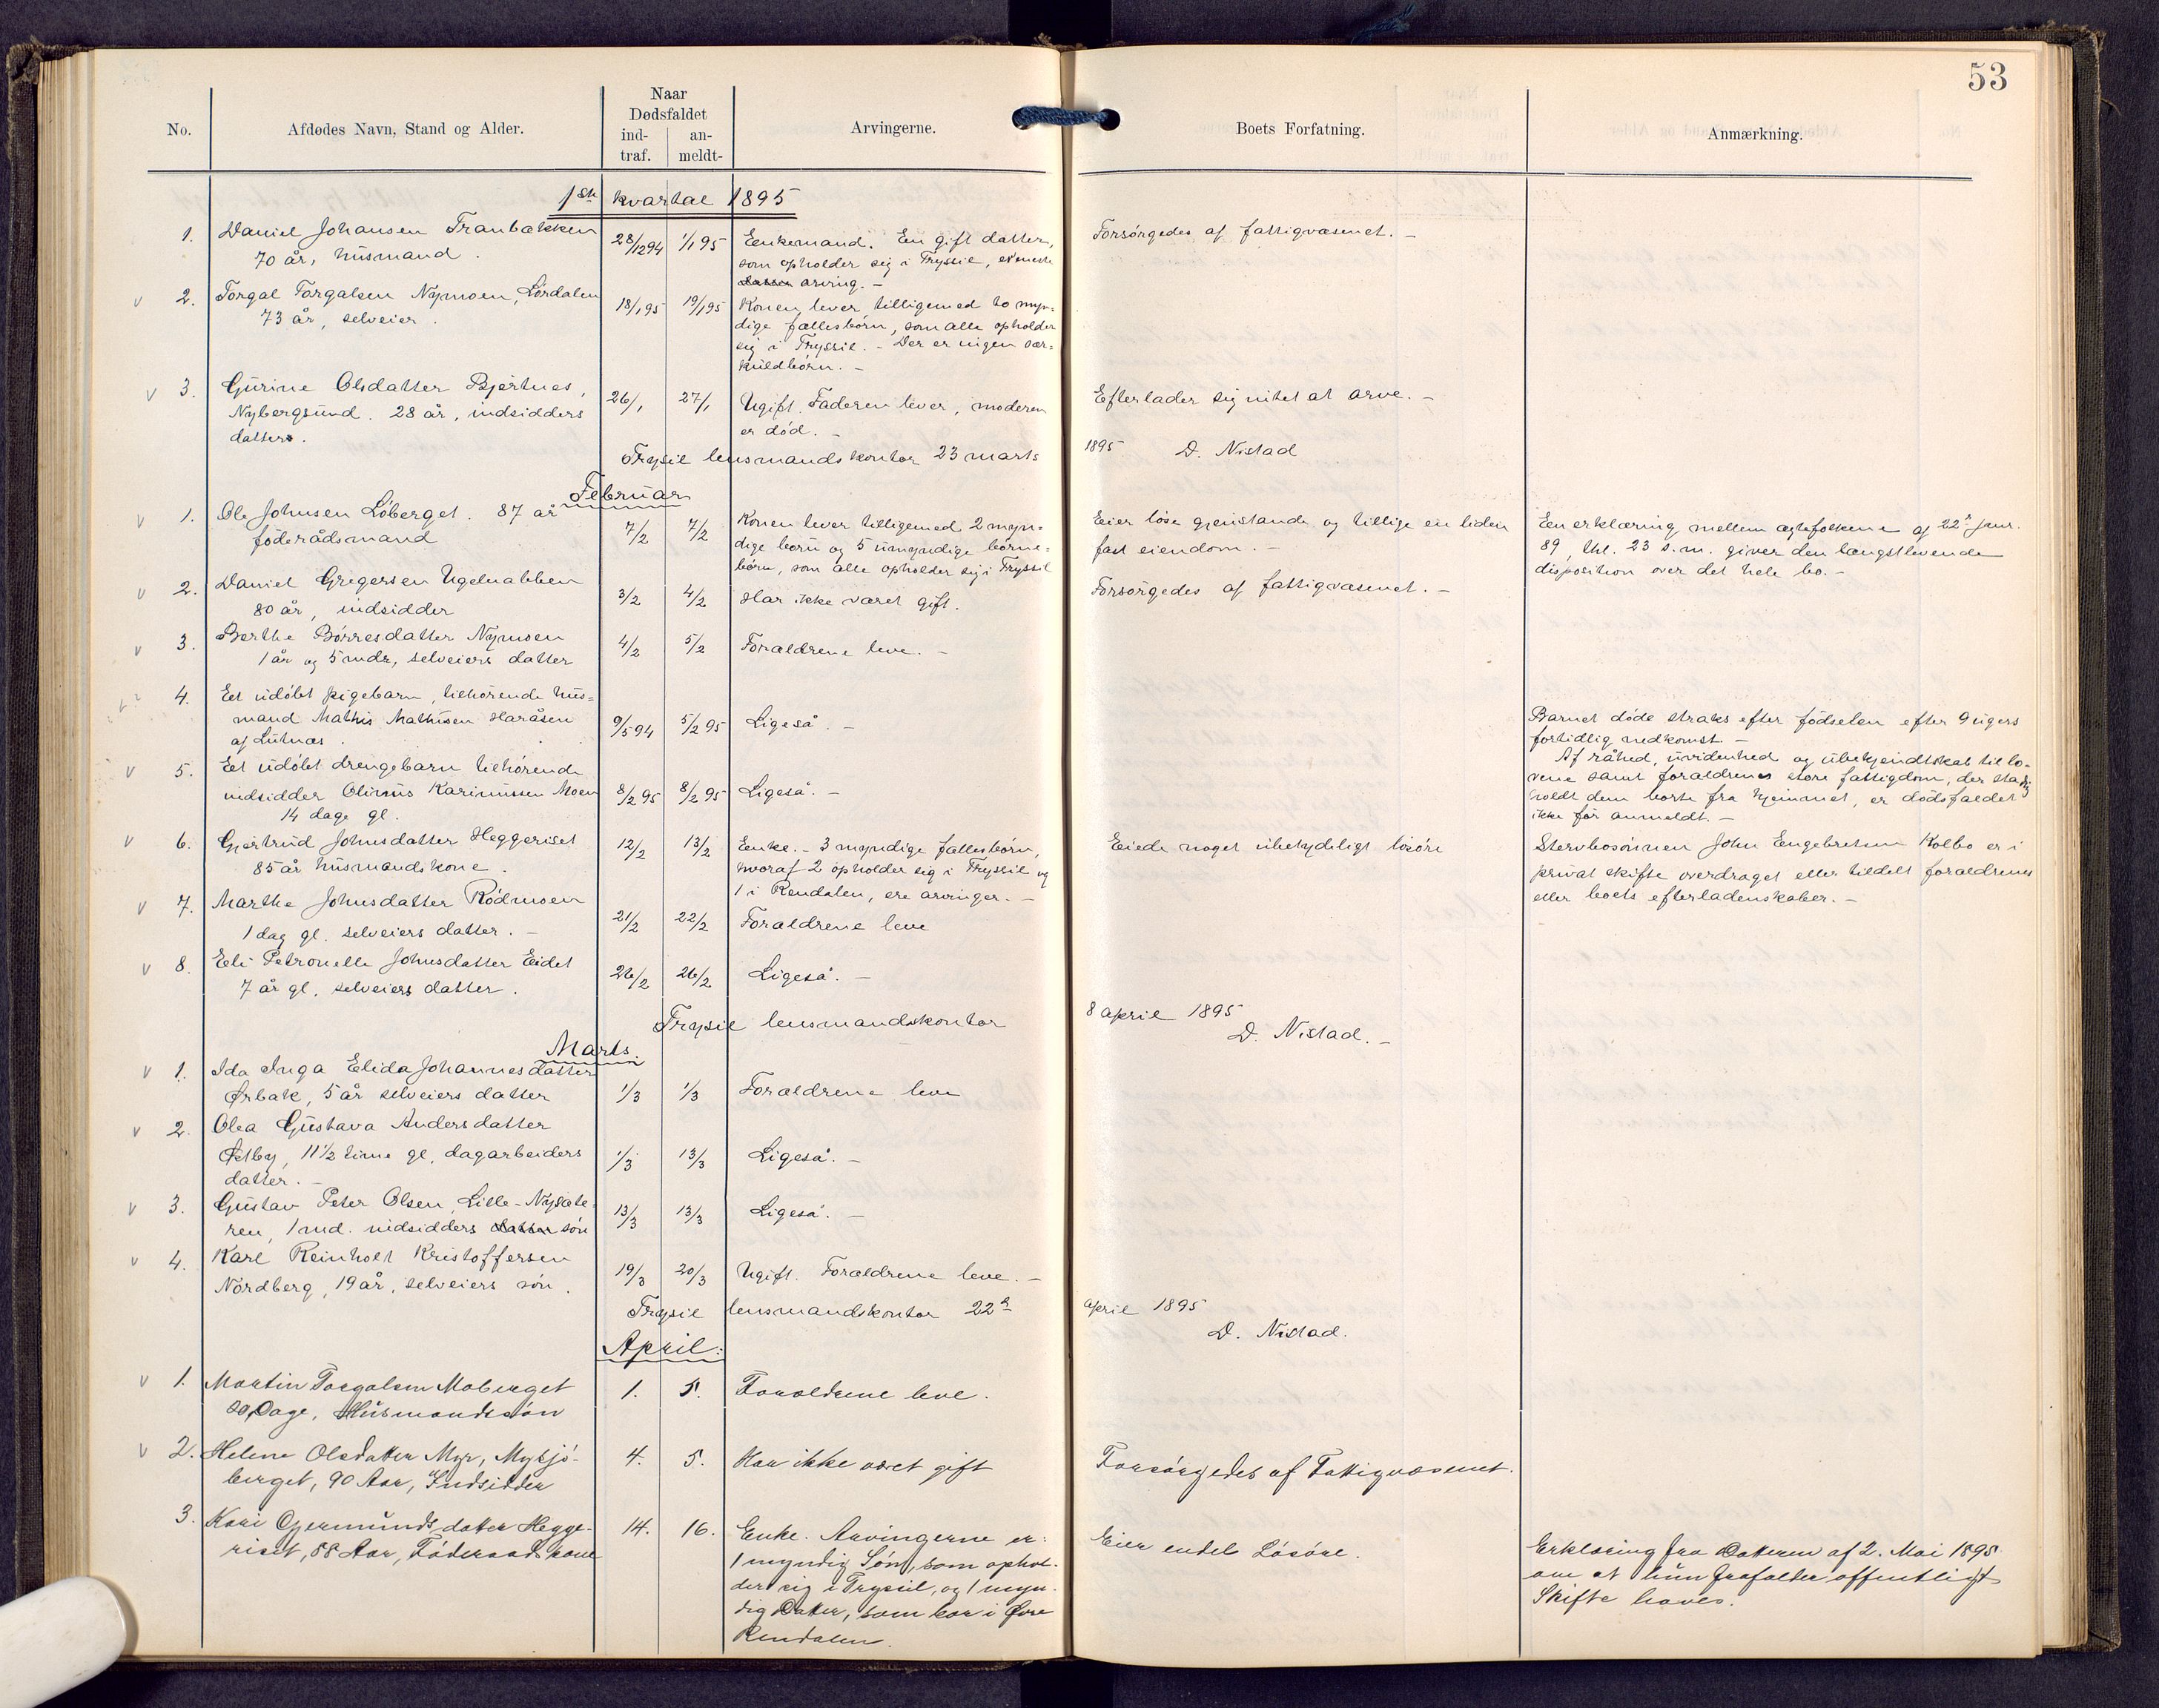 53
No.
Afdødes Navn, Stand og Alder.
Naar
Dødsfaldet
ind-
traf.
an-
meldt-
Arvingerne.
Boets Forfatning.
Anmærkning.
1ste kvartal 1895
1. Daniel Johansen Tranbækken
70 år, husmand.
28/12 94 1/1 95
Enkemand. En gift datter,
som opholder sig i Tryssil, er eneste
arving. -
Forsørgedes af fattigvæsenet. -
2. Torgal Torgalsen Nymoen, Lørdalen
73 år, selveier.
18/1 95 19/1 95
Konen lever tilligemed to myn-
dige fællesbørn, som alle opholder
sig i Tryssil. - Der er ingen sær-
kuldbørn. -
3. Gurine Olsdatter Bjørtnes,
Nybergsund. 28 år, indsidders
datter.
26/1 27/1
Ugift. Faderen lever, moderen
er død. -
Efterlader sig intet at arve. -
Trysil lensmandskontor 23 marts 1895 D. Nistad
Februar
1. Ole Johnsen Løberget. 87 år
føderådsmand
7/2 7/2
Konen lever tilligemed 2 myn-
dige børn og 5 umyndige børne-
børn, som alle opholder sig i Tryssil
Eier løse gjenstande og tillige en liden
fast eiendom. -
En erklæring mellem ægtefolkene af 22de janr.
89, thl. 23 s.m. giver den længstlevende
disposition over det hele bo. -
2. Daniel Gregersen Ugelnabben
80 år, indsidder
3/2 4/2
Har ikke været gift.
Forsørgedes af fattigvæsenet. -
3. Berthe Børresdatter Nymoen
1 år og 5 mdr, selveiers datter
4/2 5/2
Forældrene leve. -
4. Et udøbt pigebarn, tilhørende hus-
mand Mathis Mathisen Haråsen
af Lutnæs.
9/5 94 5/2 95
Ligeså. -
Barnet døde straks efter fødselen efter 9 ugers
fortidlig nedkomst. -
Af råhed, uvidenhed og ubekjendtskab til lo-
vene samt forældrenes store fattigdom, der stadig
holdt dem borte fra hjemmet, er dødsfaldet
ikke før anmeldt. -
5. Et udøbt drengebarn tilhørende
indsidder Olinus Karinussen Moen
14 dage gl.
8/2 95 8/2 95
Ligeså. -
6. Gjertrud Johnsdatter Heggeriset
85 år husmandskone.
12/2 13/2
Enke. - 3 myndige fællesbørn,
hvoraf 2 opholder sig i Tryssil og
1 i Rendalen, ere arvinger. -
Eiede noget ubetydeligt løsøre
Stervbosønnen John Engebretsen Kolbo er i
privat skifte overdraget eller tildelt forældrenes
eller boets efterladenskaber. -
7. Marthe Johnsdatter Rødmoen
1 dag gl. selveiers datter. -
21/2 22/2
Forældrene leve
8. Eli Petronelle Johnsdatter Eidet
7 år gl. selveiers datter.
26/2 26/2
Ligeså. -
Trysil lensmandskontor 8 april 1895
D. Nistad. -
Marts.
1. Ida Inga Elida Johannesdatter
Ørbæk, 5 år selveiers datter
1/3 1/3
Forældrene leve
2. Olea Gustava Andersdatter
Østby, 11 1/2 time gl, dagarbeiders
datter. -
1/3 13/3
Ligeså. -
3. Gustav Peter Olsen, Lille-Nysæte-
ren, 1 md. indsidders datter søn
13/3 13/3
Ligeså. -
4. Karl Reinholt Kristoffersen
Nordberg, 19 år, selveiers søn.
19/3 20/3
Ugift. Forældrene leve. -
Trysil lensmandskontor 22de april 1895
D. Nistad.
April:
1. Martin Torgalsen Moberget
20 Dage, Husmandssøn
1. 5.
Forældrene leve.
2. Helene Olsdatter Myr, Myksjø-
berget, 90 Aar, Indsidder
4. 5.
Har ikke været gift
Forsørgedes af Fattigvæsenet.
3. Kari Gjermundsdatter Hegge-
riset, 88 Aar, Føderaadskone
14. 16.
Enke. Arvingerne er:
1 myndig Søn, som ophol-
der sig i Trysil, og 1 myn-
dig Datter, som bor i Øvre
Rendalen.
Eier endel Løsøre.
Erklæring fra Datteren af 2. Mai 1895
om at hun frafalder offentligt
Skifte haves.